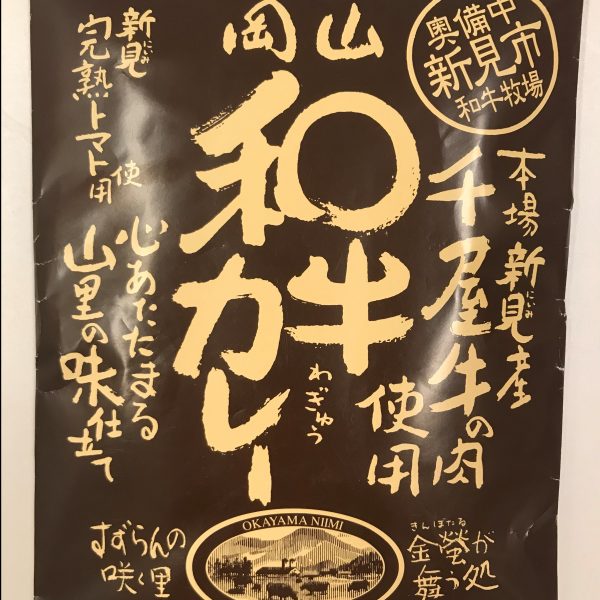 岡山
和牛
カレー
わぎゅう
奥備中
新見市
和牛牧場
本場新見産
にいみ
千屋牛の肉
使用
新見
にいみ
完熟トマト使用
心あたたまる
山里の味仕立て
すずらんの
咲く里
OKAYAMA NIIMI
きんぼたる
金螢が
舞う処